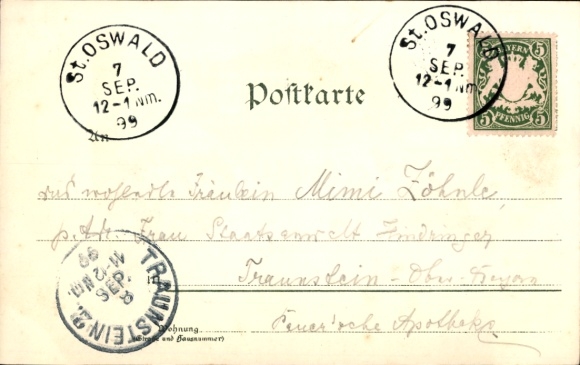 St. OSWALD
7
SEP.
12-1 Nm.
99
St. OSWALD
7
SEP.
12-1 Nm.
99
BAYERN
5 5
PFENNIG
5 5
Postkarte
An
das wohledle Fräulein Mimi Zöhnle,
p. Adr. Frau Staatsanwelt
in Traunstein - Ober-Bayern
Apotheke
Wohnung
(Strasse und Hausnummer)
TRAUNSTEIN 2.
8 SEP.
NM
99